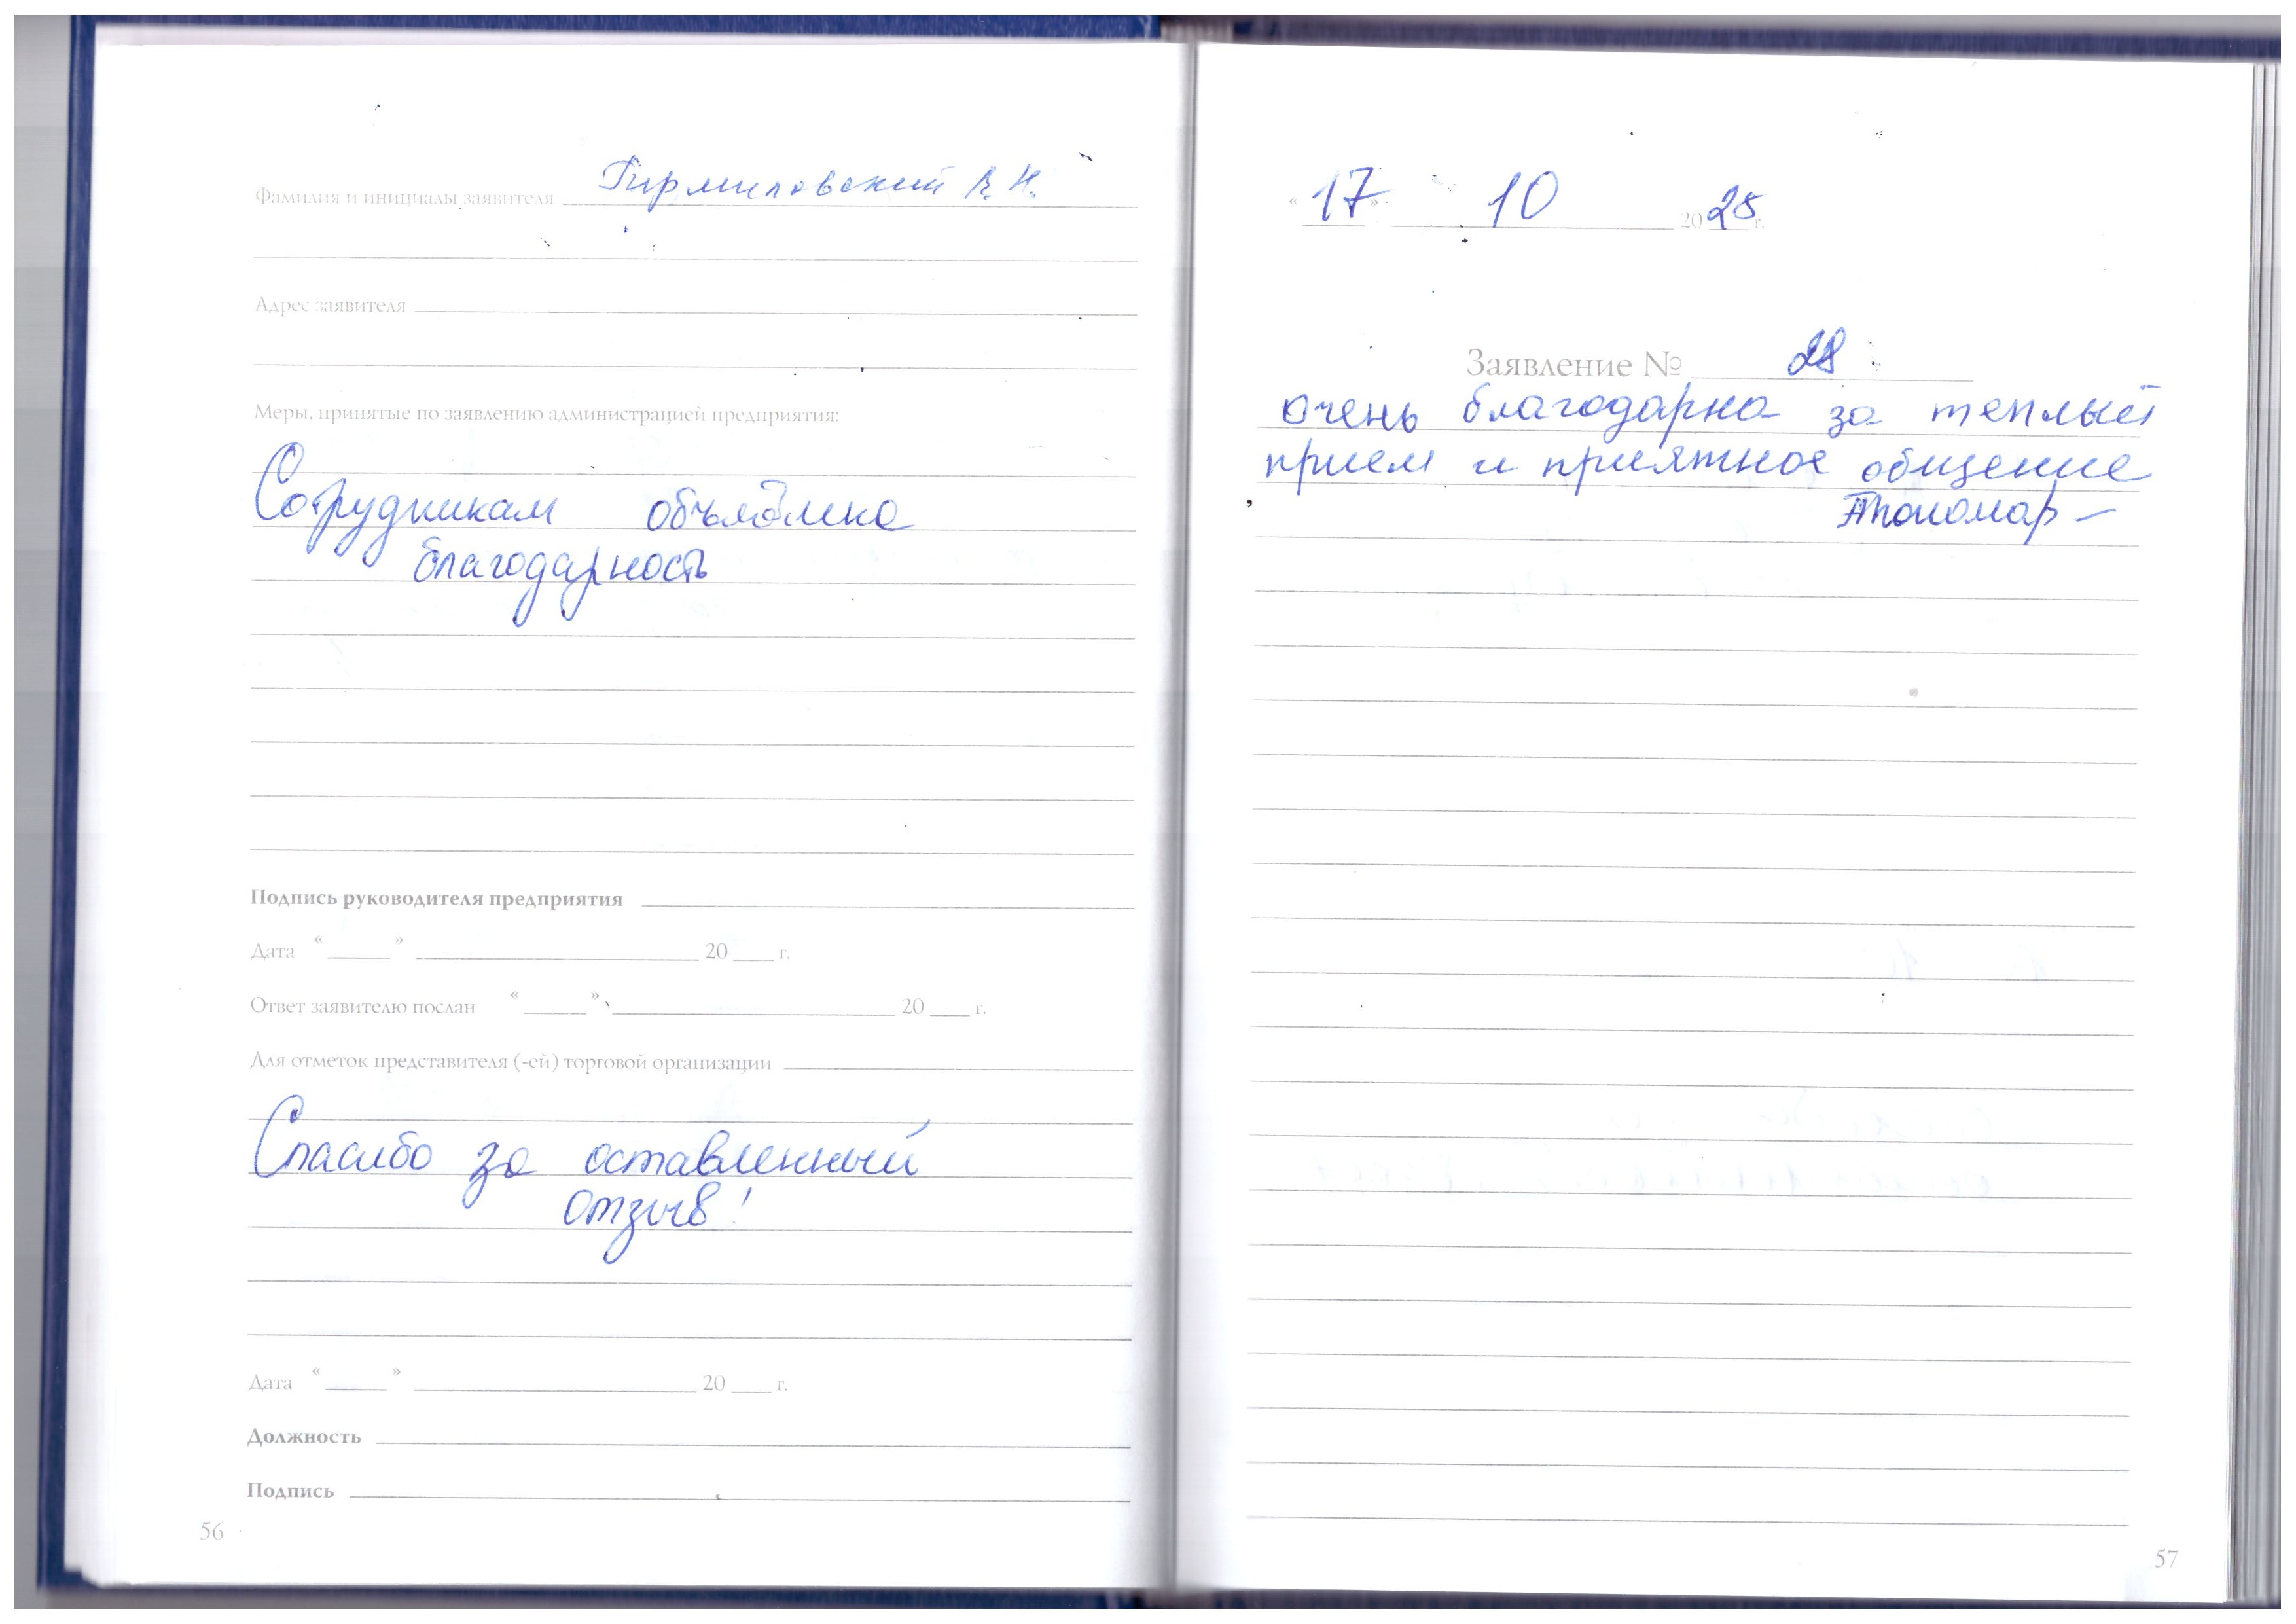 Фамилия и инициалы заявителя
Адрес заявителя
Меры, принятые по заявлению администрацией предприятия:
Сотрудникам объявлена
благодарность
Подпись руководителя предприятия
Дата « » 20 г.
Ответ заявителю послан « » 20 г.
Для отметок представителя (-ей) торговой организации
Спасибо за оставленный
отзыв!
Дата « » 20 г.
Должность
Подпись
56
« 17 » 10 2025 г.
Заявление № 28
очень благодарна за теплый
прием и приятное общение
57